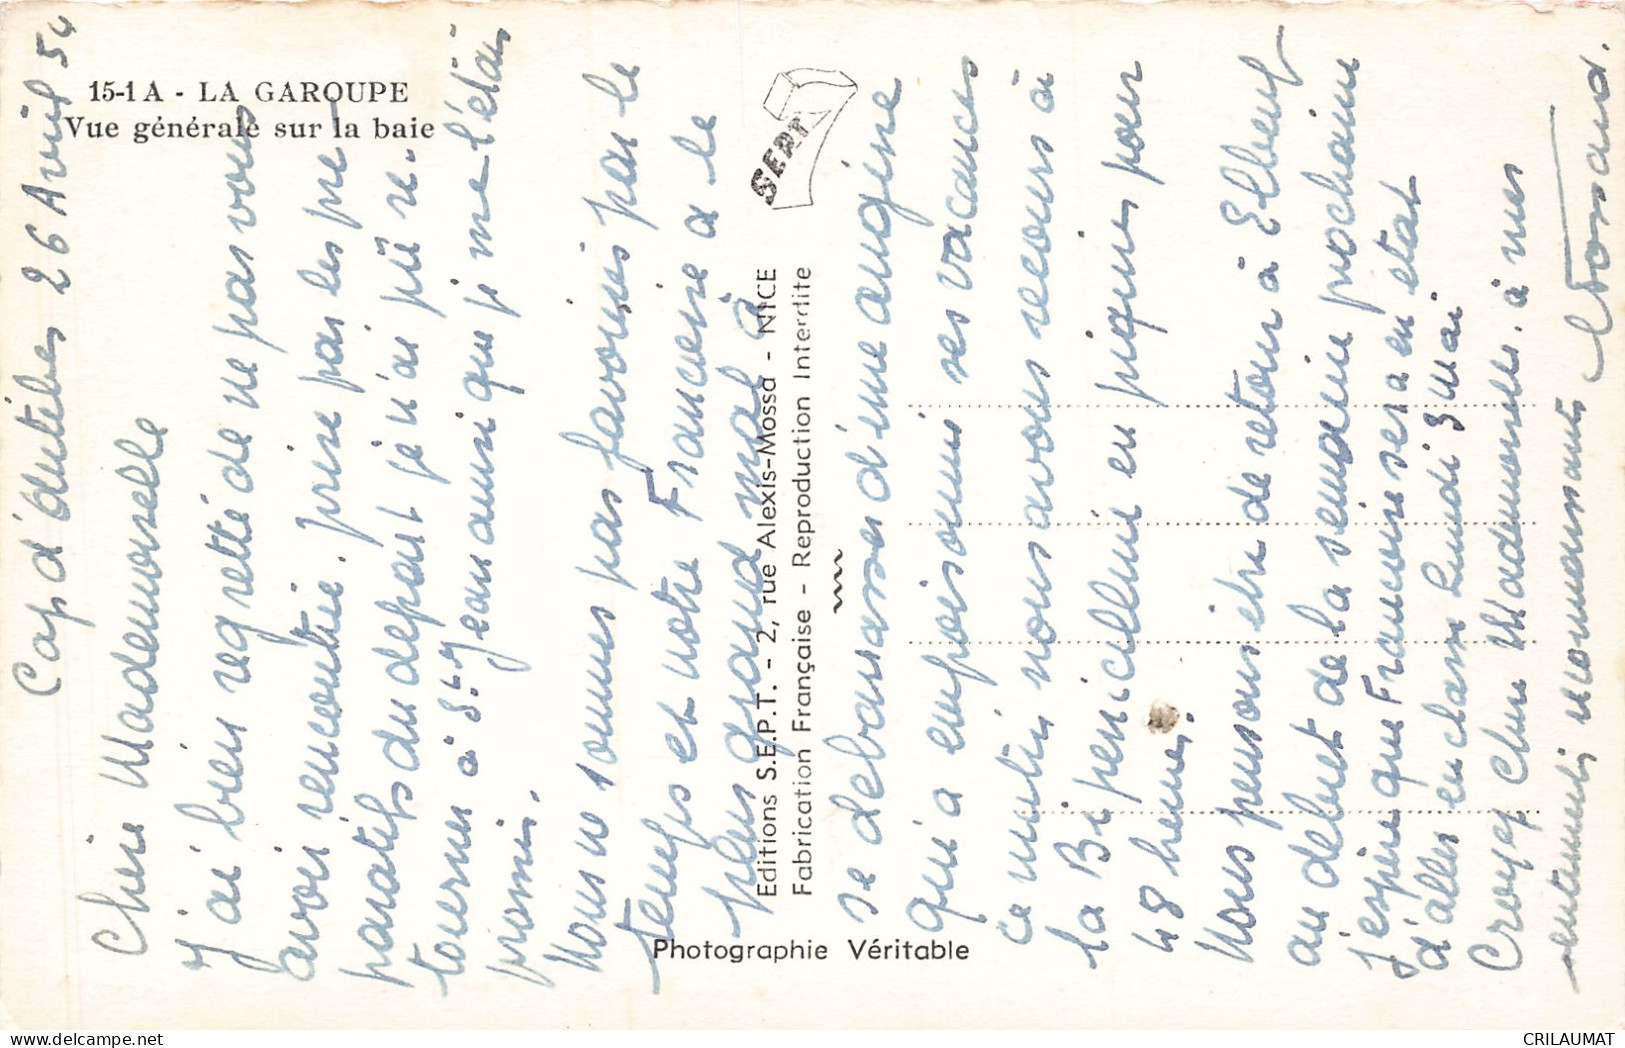 15-1 A - LA GAROUPE
Vue générale sur la baie
SEPT
Editions S.E.P.T. - 2, rue Alexis-Mossa - NICE
Fabrication Française - Reproduction Interdite
Photographie Véritable
Cap d'Antibes 26 Avril 54
Chère Mademoiselle
J'ai bien regretté de ne pas vous
avoir rencontrée, prise par les pré
paratifs du départ je n'ai pû re-
tourner à St Jean ainsi que je me l'étais
promis.
Nous ne sommes pas favorisés par le
temps et notre Francoise a le
plus grand mal à
se debarasser d'une angine
qui a empoisonné ses vacances
ce matin nous avons recours à
la Bi penicilline en piqures pour
48 heures.
Nous pensons être de retour à Elbeuf
au debut de la semaine prochaine
J'espère que Francoise sera en état
d'aller en classe Lundi 3 Mai
Croyez Chère Mademoiselle, à mes
sentiments reconnaissants
CRILAUMAT